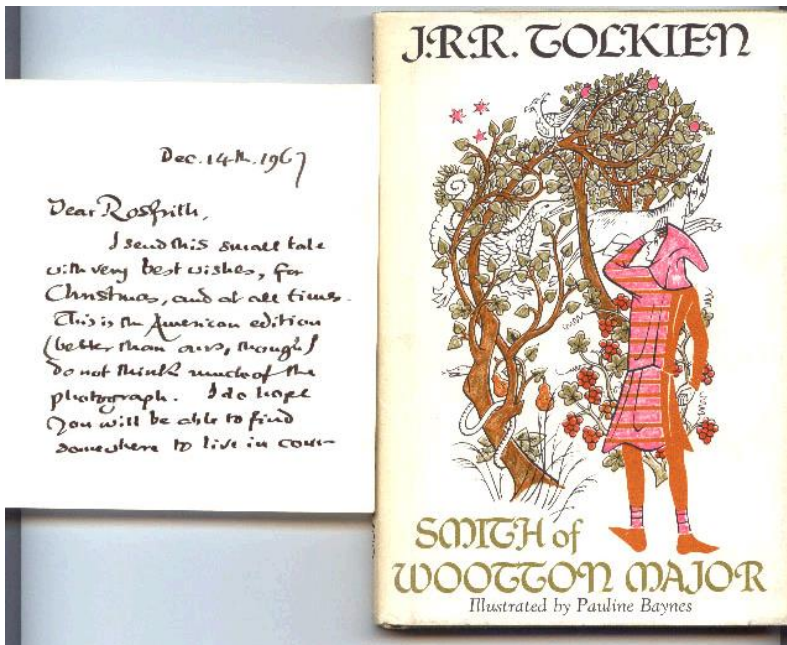 Dec. 14th. 1967
Dear Rosfrith,
I send this small tale
with very best wishes, for
Christmas, and at all times.
This is the American edition
(better than ours, though I
do not think much of the
photograph. I do hope
you will be able to find
somewhere to live in com-
J.R.R. TOLKIEN
SMITH of
WOOTTON MAJOR
Illustrated by Pauline Baynes